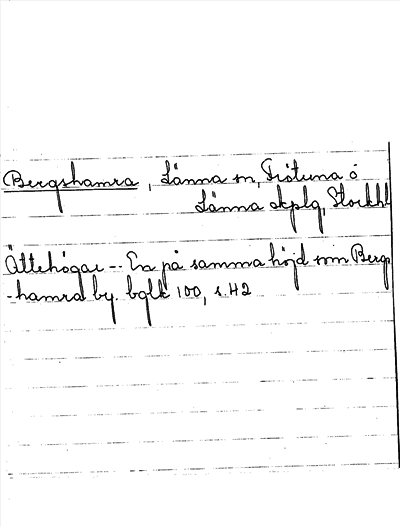 Bergshamra, Länna sn, Frötuna o
Länna skplg, Stockhl
Ättehögar -- En på samma höjd som Bergs
-hamra by. bglk 100, s.42